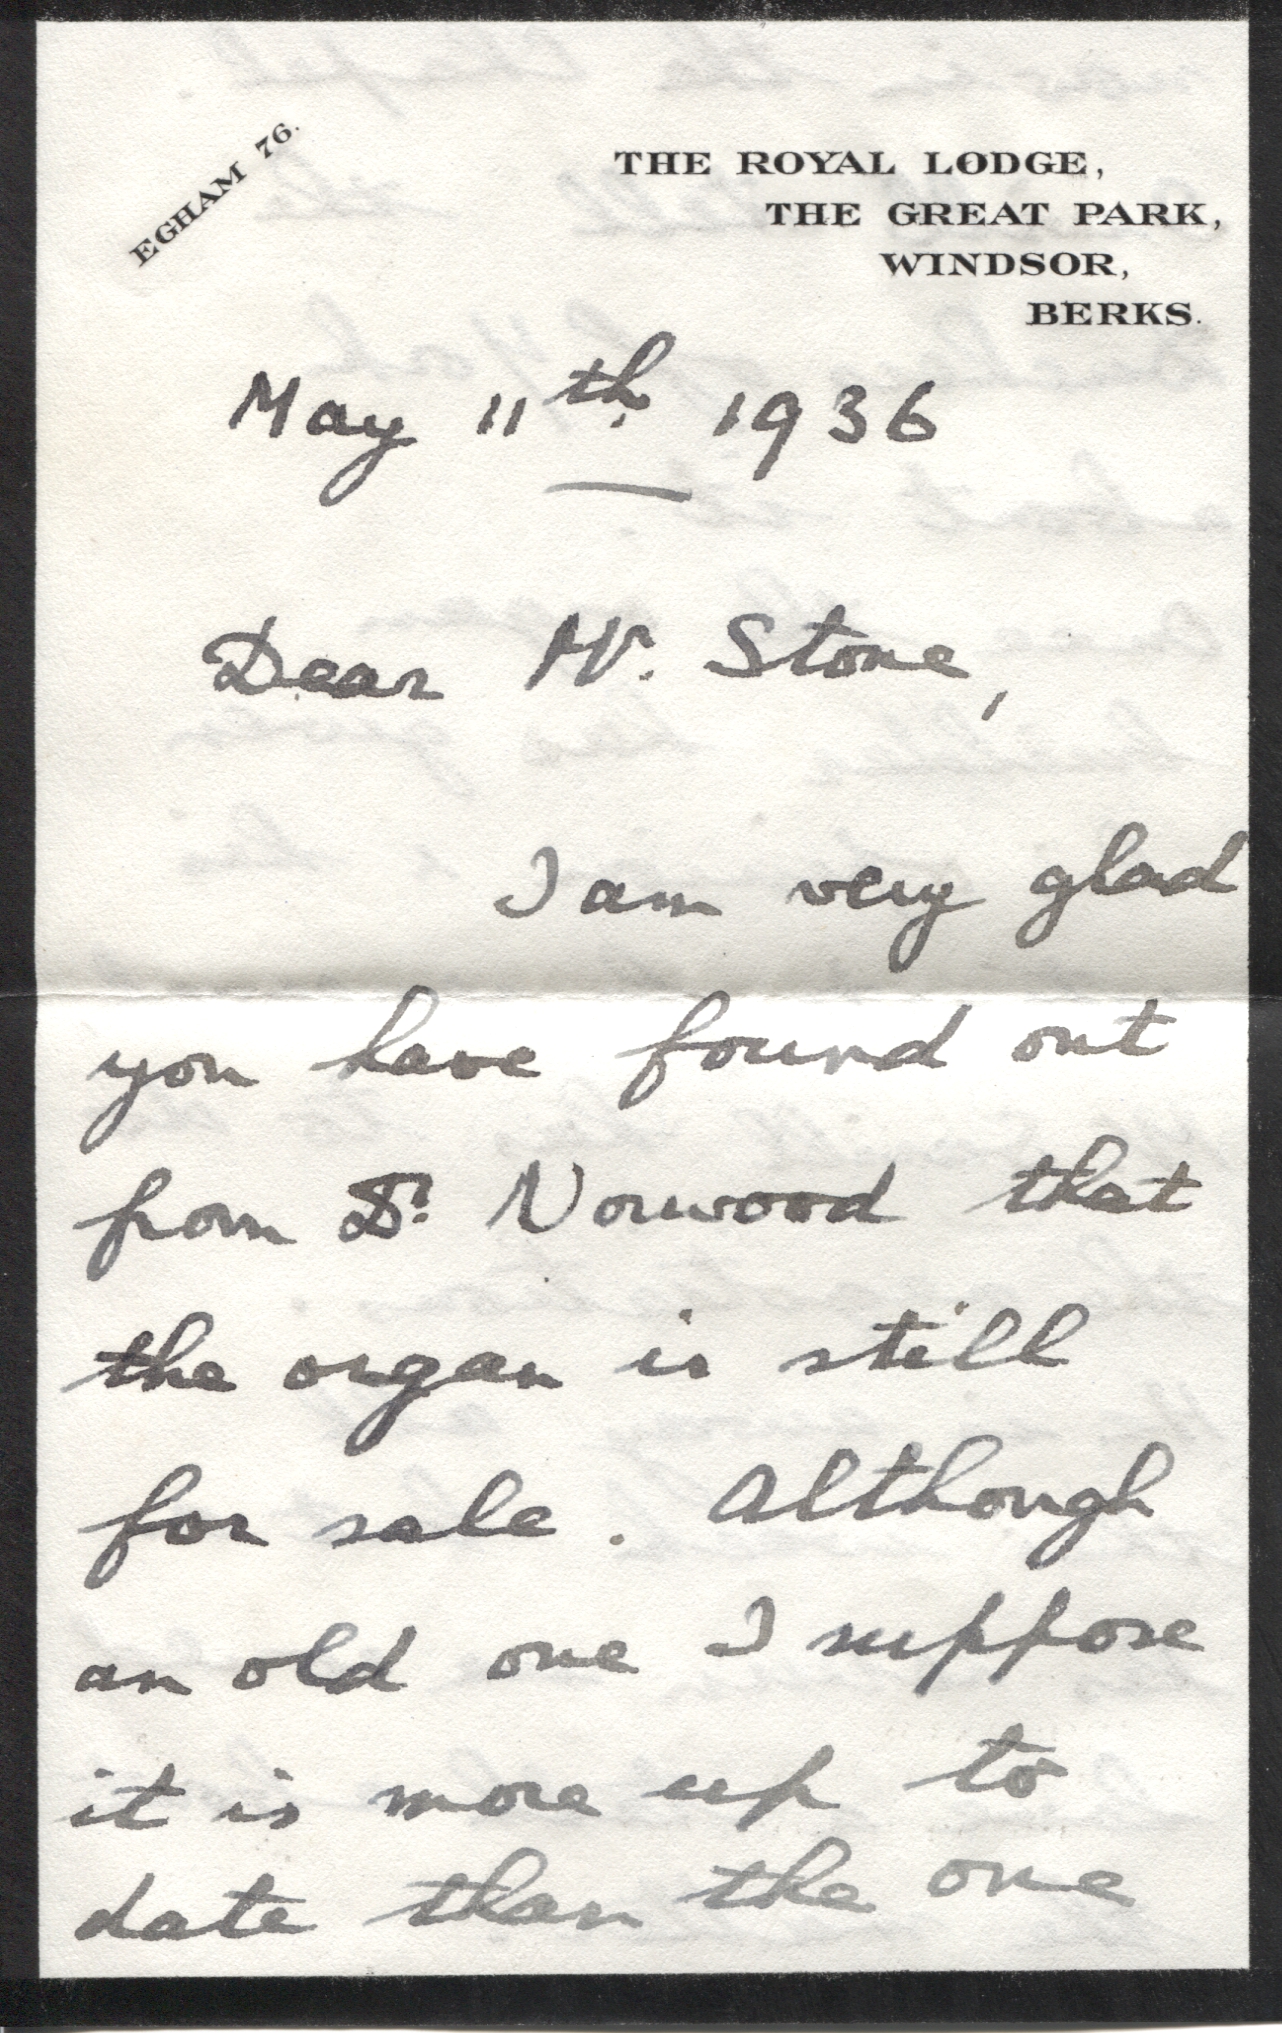 EGHAM 76.
THE ROYAL LODGE,
THE GREAT PARK,
WINDSOR,
BERKS.
May 11th 1936
Dear Mr. Stone,
I am very glad
you have found out
from Dr. Norwood that
the organ is still
for sale. Although
an old one I suppose
it is more up to
date than the one